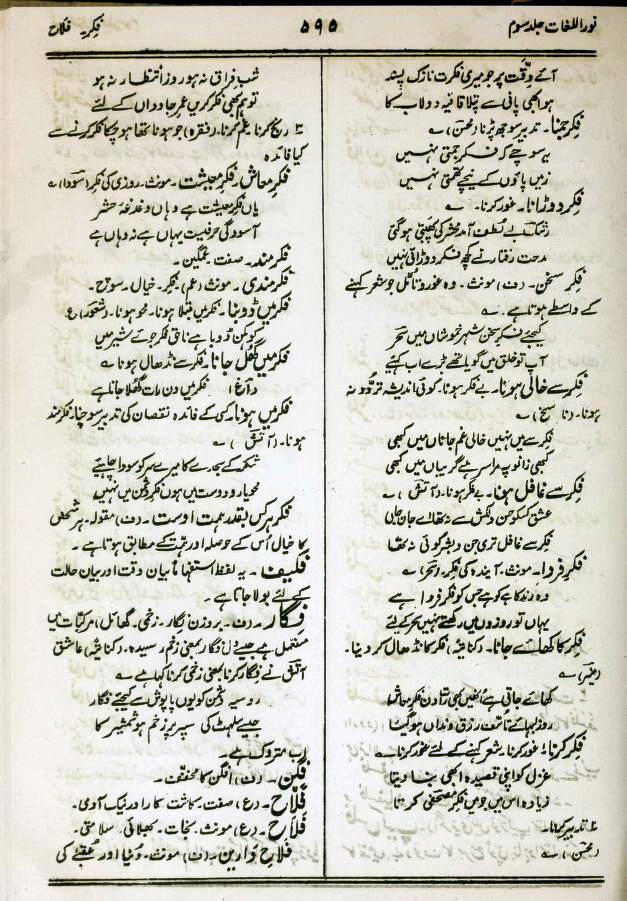 نوراللغات جلد سوم
۵۹۵
فکریہ فلاح
آئے وقت پر جو میری فکرت نازک پسند
ہو ابھی پانی سے پتلا قافیہ دولاب کا
فکر جمنا۔ تدبیر سوجھ پڑنا (محسن) ؎
یہ سوچ ہے کہ فکر جمتی نہیں
زمیں پانوں کے نیچے تھمتی نہیں
فکر دوڑانا۔ غور کرنا۔ ؎
رشک بے لطف آمد محشر کی پھبتی ہوگئی
مدحت رفتار نے کچھ فکر دوڑائی نہیں
فکر سخن۔ (ف) مونث۔ وہ غور و تامل جو شعر کہنے
کے واسطے ہوتا ہے۔ ؎
کیجئے فکر سخن شہر خموشاں میں سحر
آپ تو خلق میں گویا تھے بڑے اب کہئے
فکر سے خالی ہونا۔ بے فکر ہونا۔ کوئی اندیشہ تردد نہ
ہونا۔ (ناسخ) ؎
فکر سے میں نہیں خالی غم جاناں میں کبھی
کبھی زانو پہ مرا سر ہے گریباں میں کبھی
فکر سے غافل ہونا۔ بے فکر ہونا۔ (آتش) ؎
عشق کس کو حسن دلکش سے نہ تھا اے جان جاں
فکر سے غافل تری جن و بشر کوئی نہ تھا
فکر فردا۔ مونث۔ آیندہ کی فکر۔ (سحر) ؎
وہ زندگا ہے کو ہے جس کو فکر فردا ہے
یہاں تو روزہ میں رکھتے نہیں سحر کے لئے
فکر کا کھائے جانا۔ (کنایۃً) فکر کا نڈھال کر دینا۔
(منیر) ؎
کھائے جاتی ہے اُنھیں بھی رات دن فکر معاش
روز لبہائے تاسف رزق دنداں ہوگیا
فکر کرنا ۱ غور کرنا۔ شعر کہنے کے لئے غور کرنا۔ ؎
غزل کو اپنی قصیدہ ابھی بنا دیتا
زیادہ اس میں جو میں فکر مصحفی کرتا
۲ تدبیر کرنا۔
(محسن) ؎
شب فراق نہ ہو روز انتظار نہ ہو
تو ہم بھی فکر کریں عمر جاوداں کے لئے
۳ رنج کرنا۔ غم کرنا۔ (فقرہ) جو ہونا تھا ہوچکا فکر کرنے سے
کیا فائدہ
فکر معاش۔ فکر معیشت۔ مونث۔ روزی کی فکر (سودا) ؎
یاں فکر معیشت ہے وہاں دغدغۂ حشر
آسودگی حرفیست یہاں ہے نہ وہاں ہے
فکر مند۔ صفت۔ غمگین۔
فکر مندی۔ مونث۔ (عم) فکر۔ خیال۔ سوچ۔
فکر میں ڈوبنا۔ فکر میں مبتلا ہونا۔ محو ہونا۔ (شعور) ع
کوہکن ڈوبا ہے ناحق فکر جوئے شیر میں
فکر میں گھل جانا۔ فکر سے نڈھال ہونا ؎
داغ) فکر میں دن رات گھلا جاتا ہے
فکر میں ہونا۔ کسی کے فائدہ نقصان کی تدبیر سوچنا۔ فکر مند
ہونا۔ (آتش) ؎
شکر کے سجدے کا میرے سر کو سودا چاہیے
محو یاد دوست میں ہوں فکر دشمن میں نہیں
فکر ہر کس بقدر ہمت اوست۔ (ف) مقولہ۔ ہر شخص
کا خیال اُس کے حوصلہ اور ہمت کے مطابق ہوتا ہے۔
فکیف۔ یہ لفظ استفہاماً بیان وقت اور بیان حالت
کے لئے بولا جاتا ہے۔
فگار۔ (ف۔ بروزن نگار۔ زخمی۔ گھائل) مرکبات میں
مستعمل ہے جیسے دل فگار بمعنی زخم رسیدہ۔ (کنایۃً) عاشق
آتش نے فگار کرنا بمعنی زخمی کرنا کہا ہے ؎
روسیہ دشمن کو یوں پاپوش سے کیجئے فگار
جیسے سلہٹ کی سپر پر زخم ہو شمشیر کا
اب متروک ہے۔
فگن۔ (ف) افگن کا مخفف۔
فلّاح۔ (ع) صفت۔ کاشت کار اور نیک آدمی۔
فلاح۔ (ع) مونث۔ نجات۔ بھلائی۔ سلامتی۔
فلاح دارین۔ (ف) مونث۔ دنیا اور عقبےٰ کی